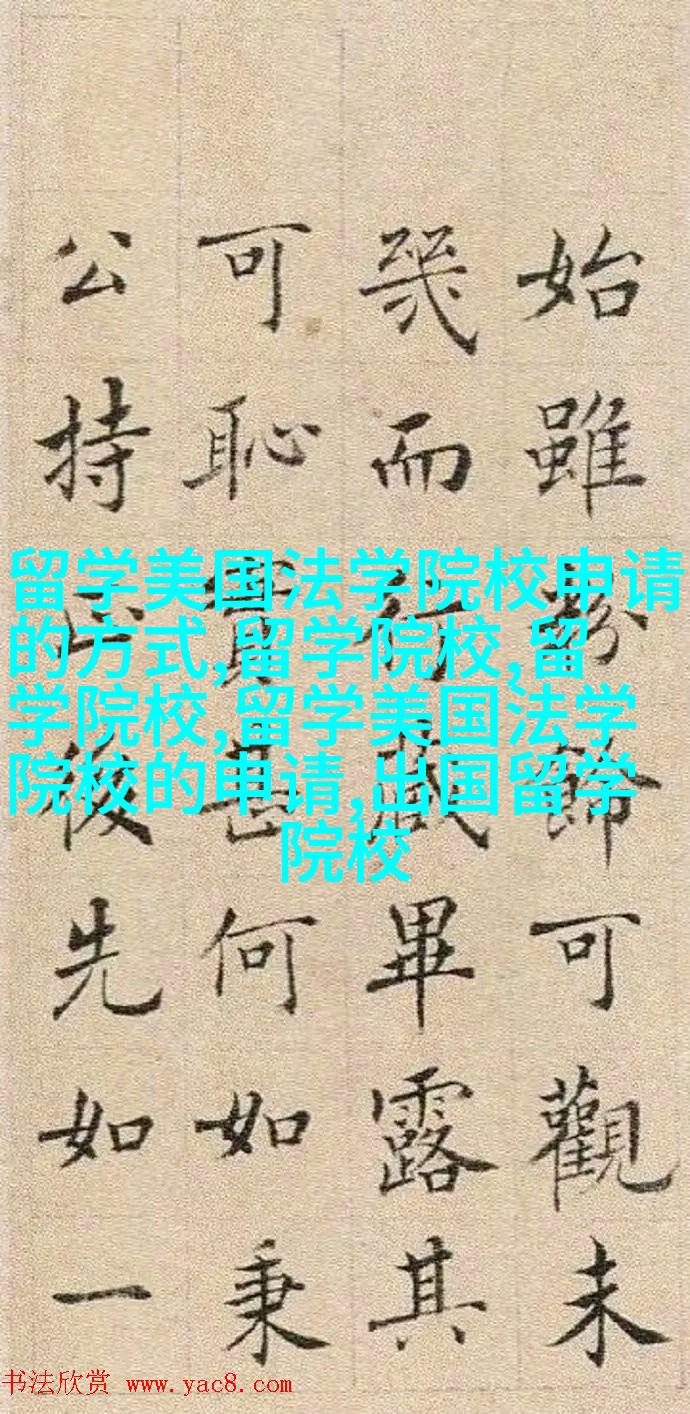 始雖粉飾可觀未
幾而行藏畢露其
可恥實甚何如秉
公持正後先如一
留学美国法学院校申请
的方式,留学院校,留
学院校,留学美国法学
院校的申请,出国留学
院校
书法欣赏 www.yac8.com